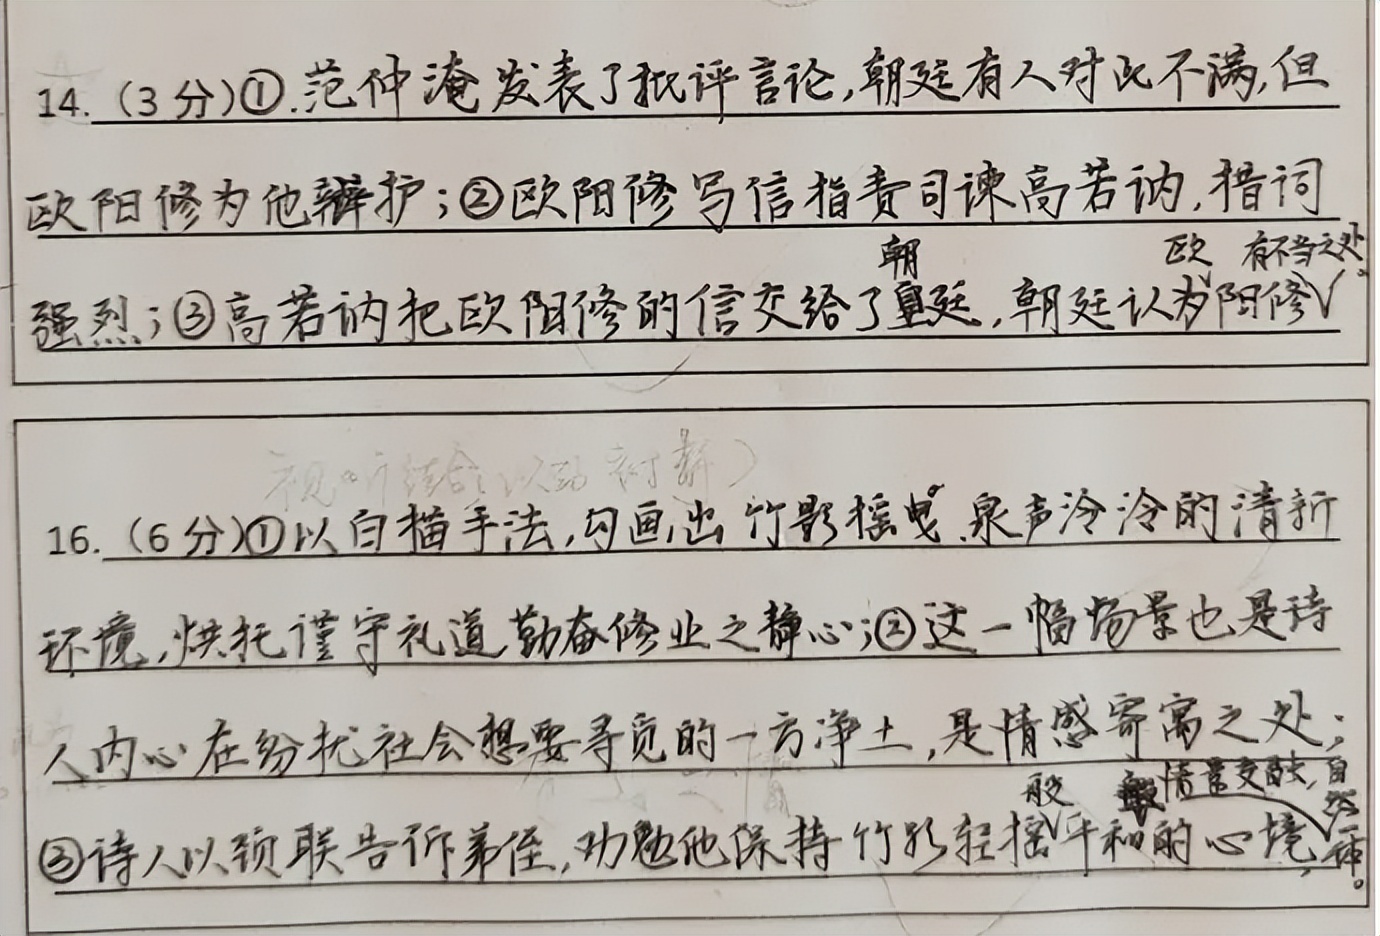 14. (3分)①.范仲淹发表了批评言论,朝廷有人对此不满,但
欧阳修为他辩护;②欧阳修写信指责司谏高若讷,措词
强烈;③高若讷把欧阳修的信交给了朝廷,朝廷认为欧阳修有不当之处。
视听结合,以动衬静)
16. (6分)①以白描手法,勾画出竹影摇曳、泉声泠泠的清新
环境,烘托谨守礼道勤奋修业之静心;②这一幅场景也是诗
人内心在纷扰社会想要寻觅的一方净土,是情感寄寓之处;
③诗人以颔联告诉弟侄,劝勉他保持竹影轻摇般平和的心境,情景交融,自然一体。